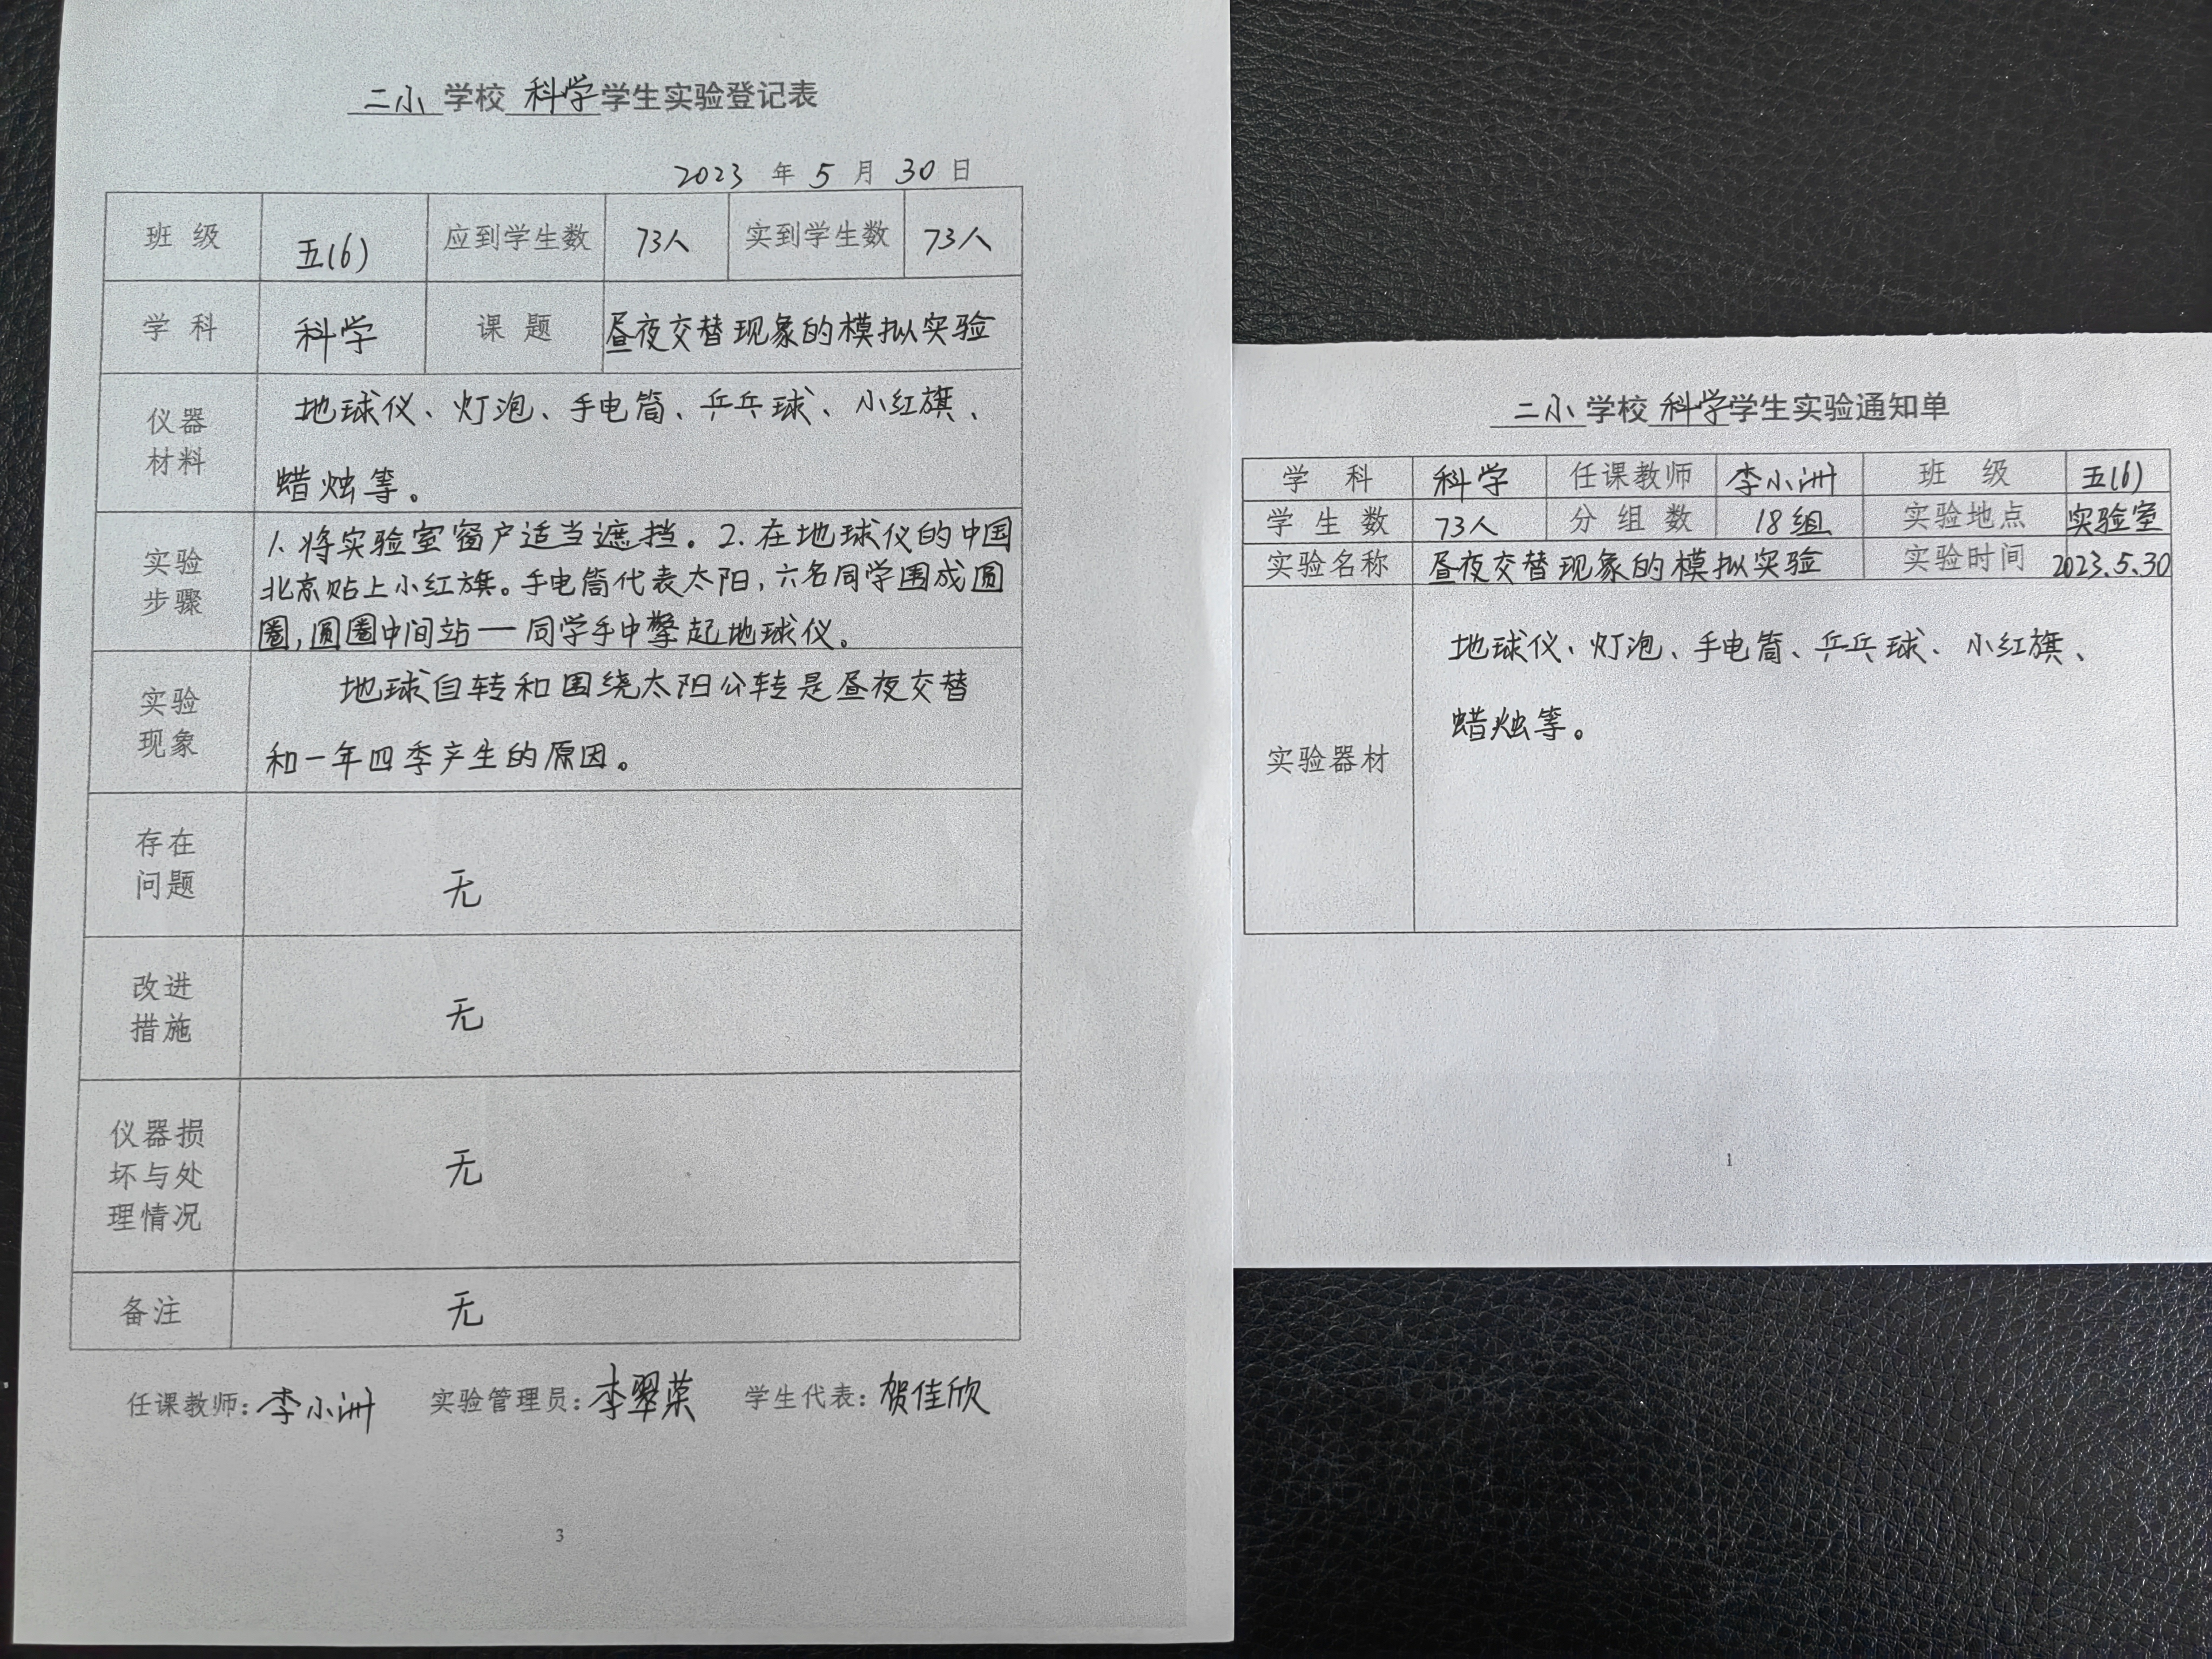 二小学校科学学生实验登记表
2023 年 5 月 30 日
班 级 五(6) 应到学生数 73人 实到学生数 73人
学 科 科学 课 题 昼夜交替现象的模拟实验
仪器
材料
地球仪、灯泡、手电筒、乒乓球、小红旗、
蜡烛等。
实验
步骤
1.将实验室窗户适当遮挡。2.在地球仪的中国
北京贴上小红旗。手电筒代表太阳，六名同学围成圆
圈，圆圈中间站一同学手中擎起地球仪。
实验
现象
地球自转和围绕太阳公转是昼夜交替
和一年四季产生的原因。
存在
问题
无
改进
措施
无
仪器损
坏与处
理情况
无
备注 无
任课教师：李小洲 实验管理员：李翠荣 学生代表：贺佳欣
3
二小学校科学学生实验通知单
学 科 科学 任课教师 李小洲 班 级 五(6)
学 生 数 73人 分 组 数 18组 实验地点 实验室
实验名称 昼夜交替现象的模拟实验 实验时间 2023.5.30
实验器材
地球仪、灯泡、手电筒、乒乓球、小红旗、
蜡烛等。
1